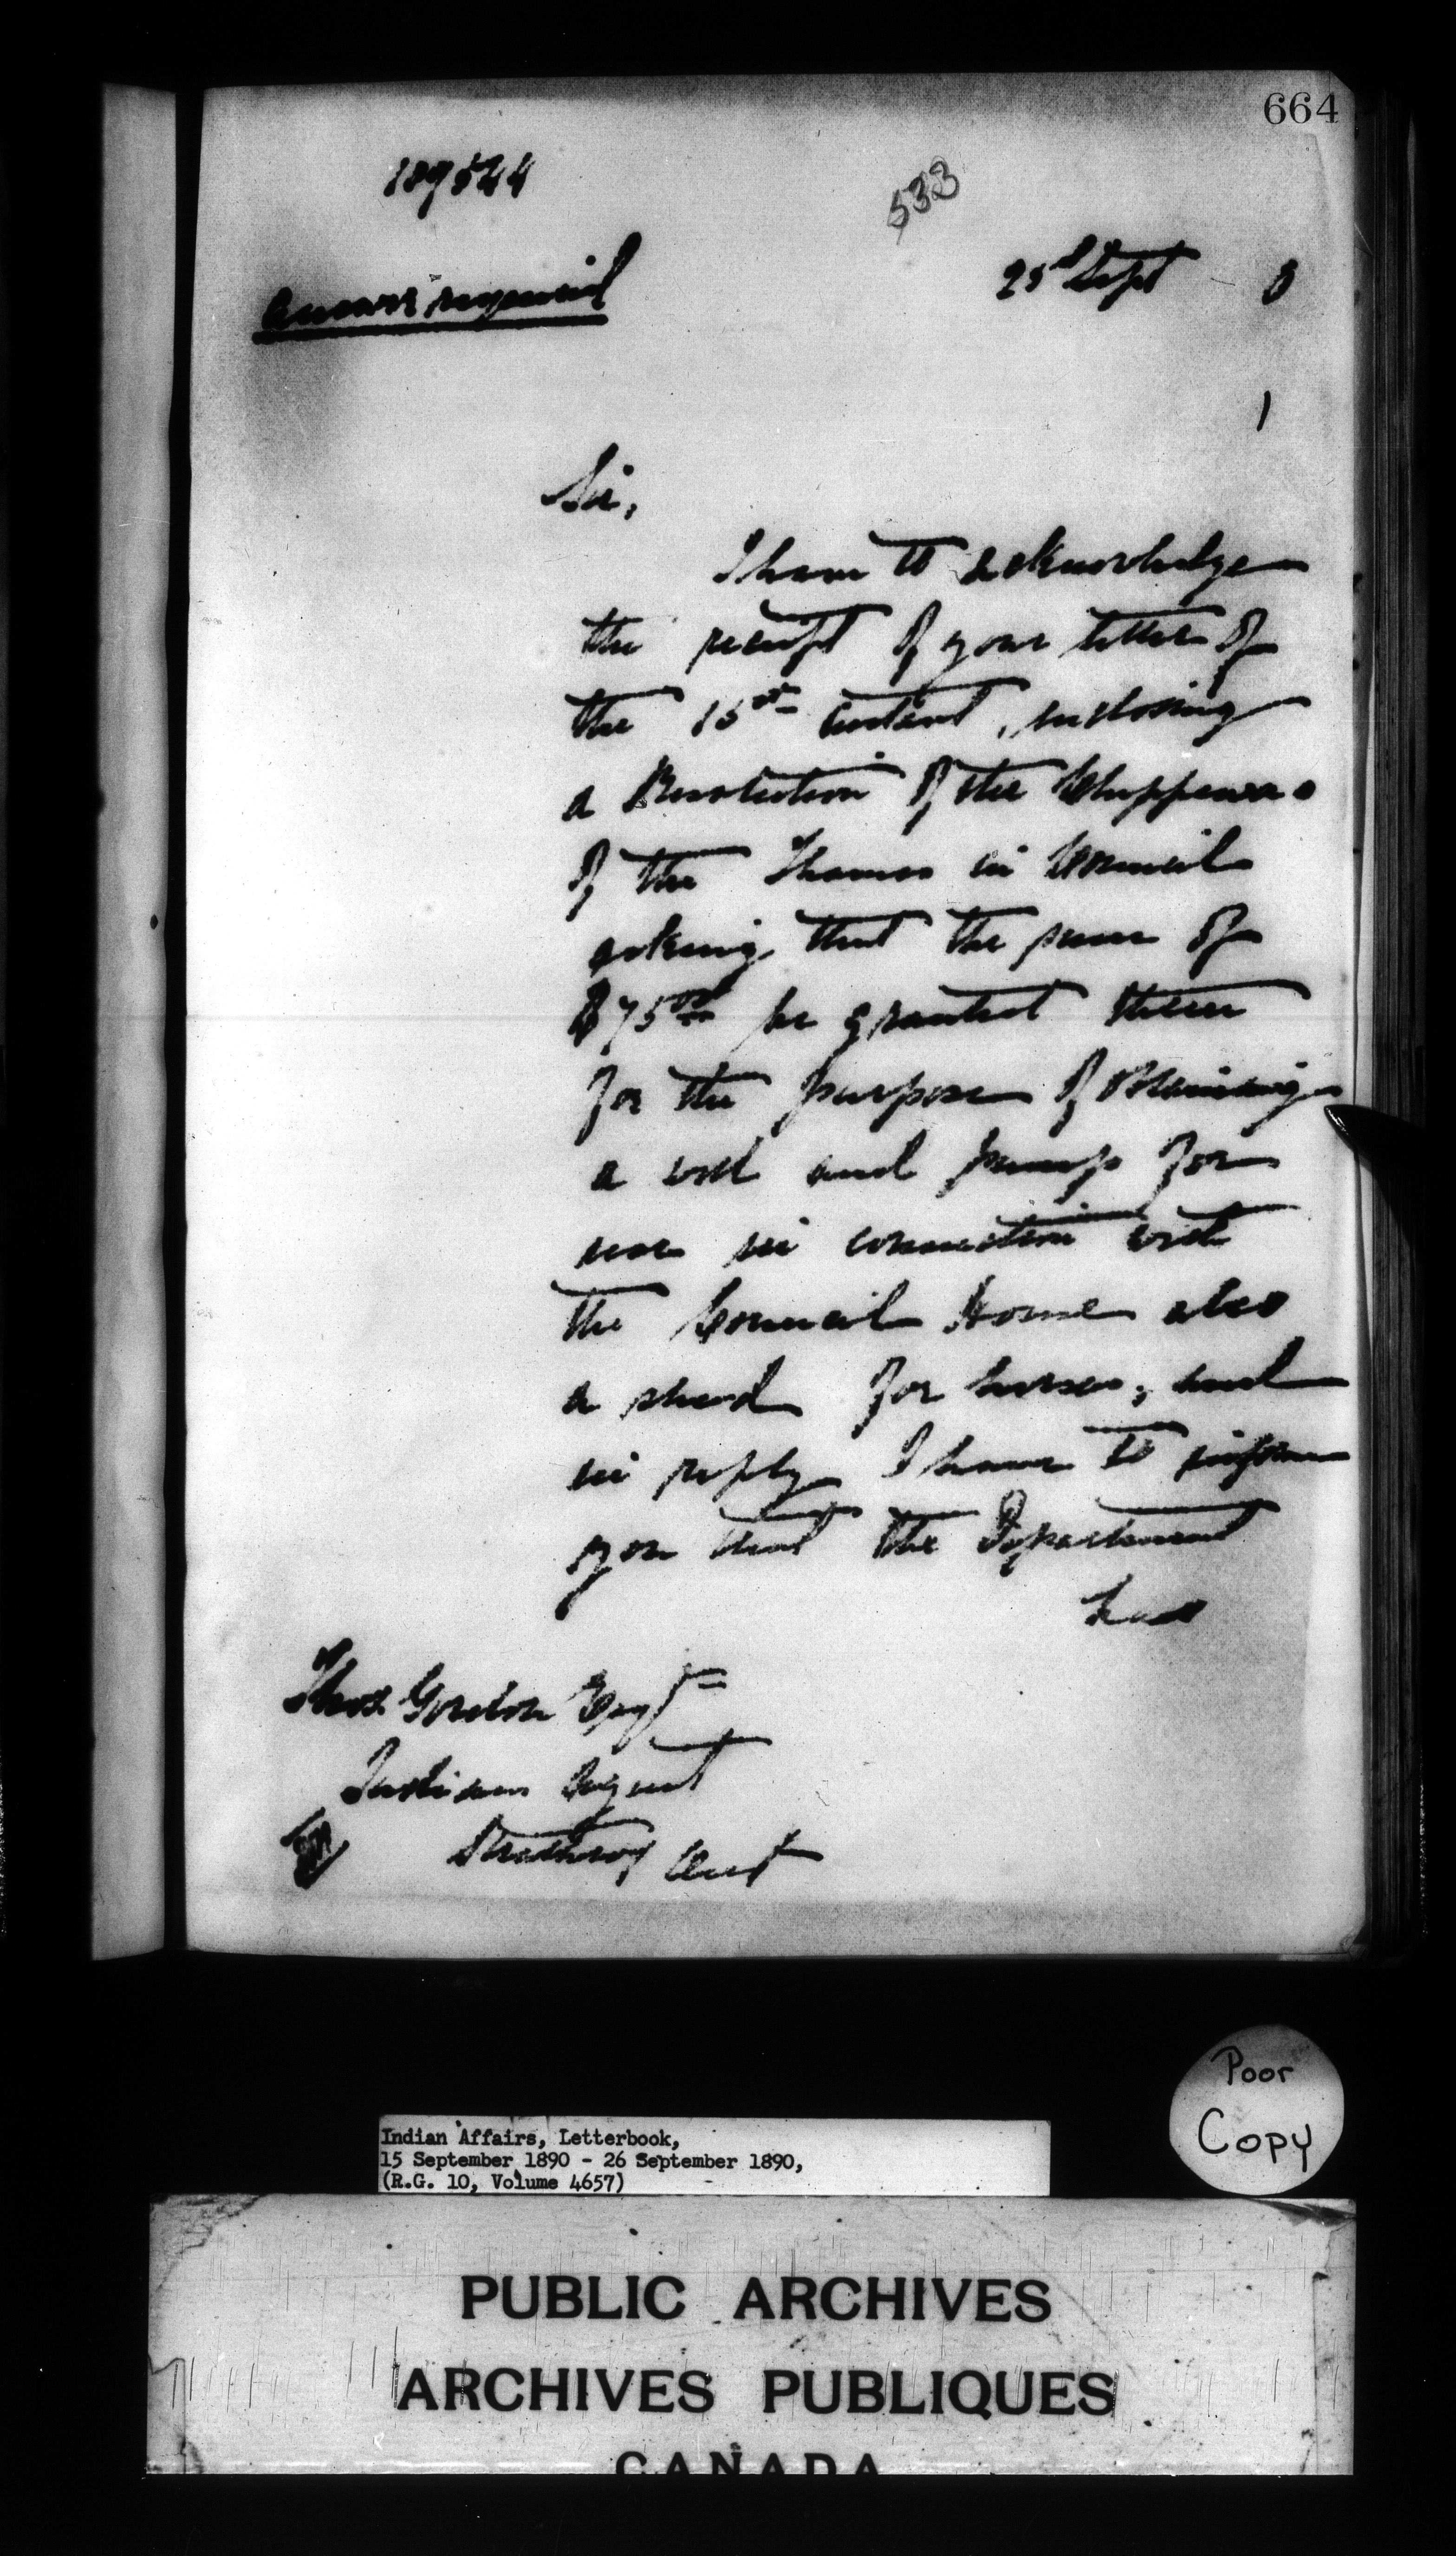 664
533
25 Sept 0
1
Sir,
I have to acknowledge
the receipt of your letter of
the 15th instant, enclosing
a Resolution of the Chippewas
of the Thames in Council
asking that the sum of
$75.00 be granted them
for the purpose of obtaining
a well and pump for
use in connection with
the Council House also
a shed for horses, and
in reply I have to inform
you that the Department
has
Thos Gordon Esqr
Indian Agent
Strathroy Ont
Poor
Copy
Indian Affairs, Letterbook,
15 September 1890 - 26 September 1890,
(R.G. 10, Volume 4657)
PUBLIC ARCHIVES
ARCHIVES PUBLIQUES
CANADA